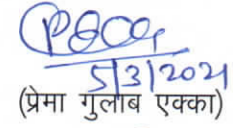 5/3/2021
(प्रेमा गुलाब एक्का)